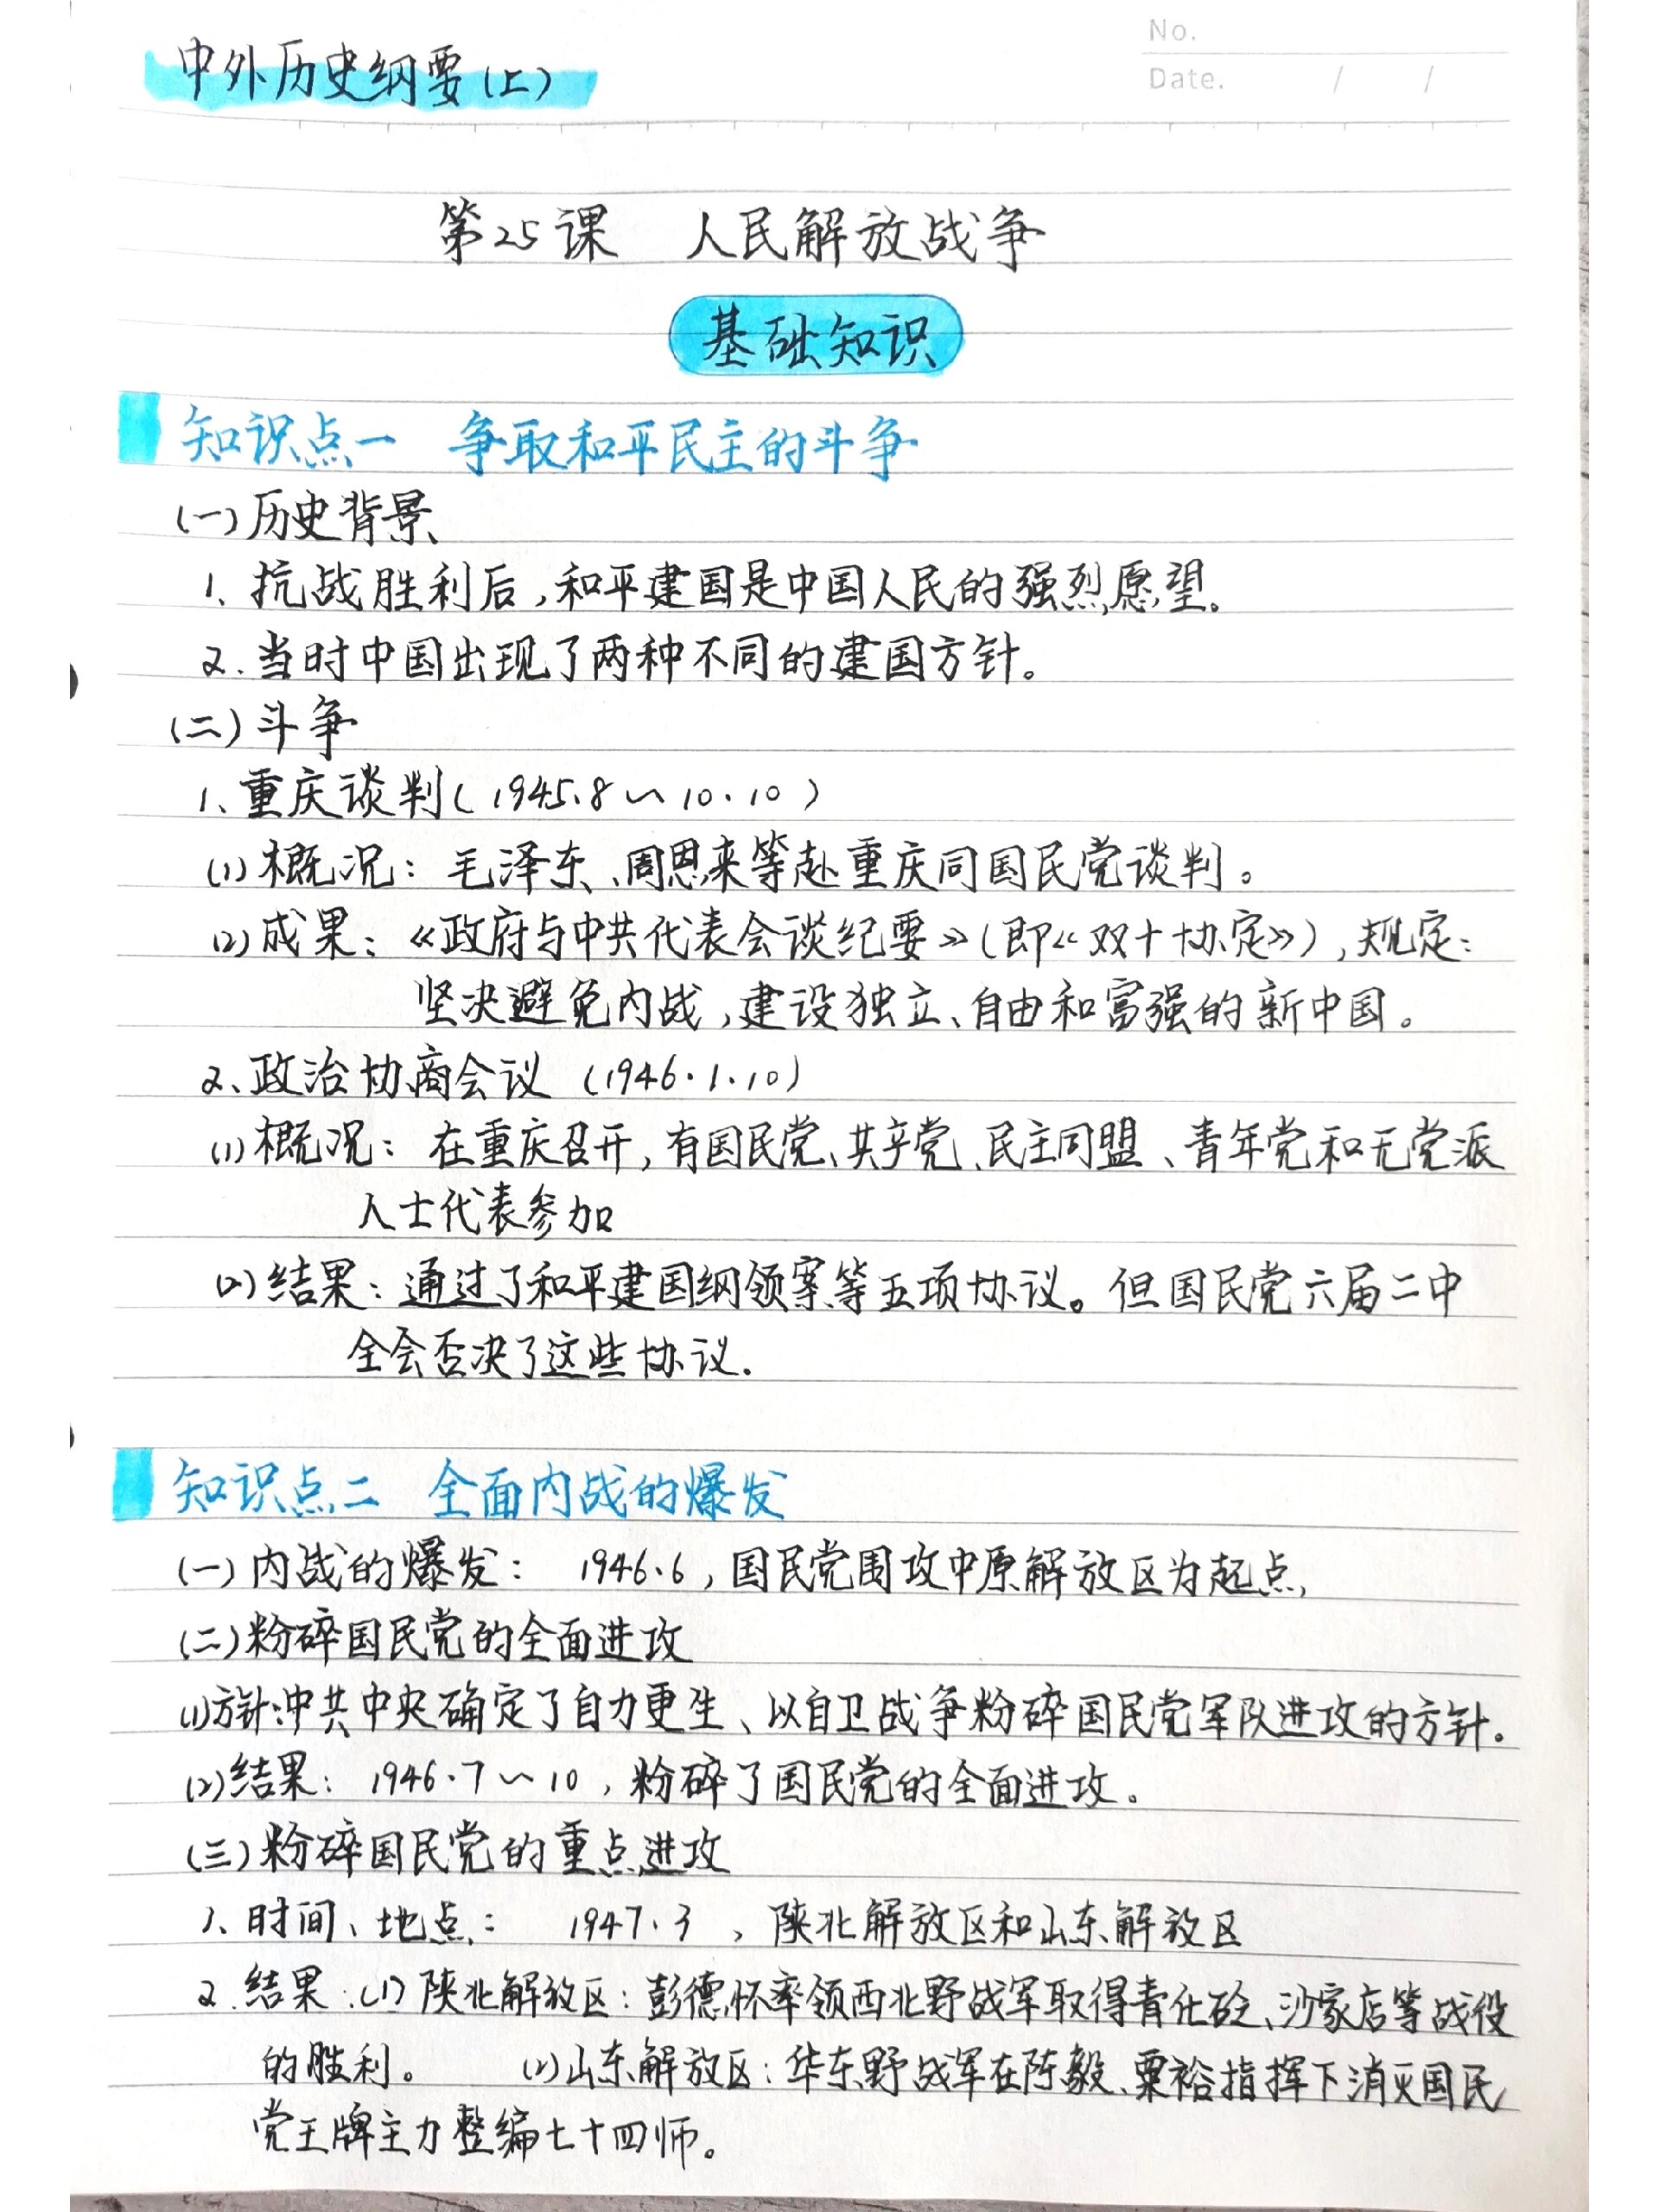 No.
Date. / /
中外历史纲要(上)
第25课 人民解放战争
基础知识
知识点一 争取和平民主的斗争
(一)历史背景
1、抗战胜利后,和平建国是中国人民的强烈愿望。
2.当时中国出现了两种不同的建国方针。
(二)斗争
1、重庆谈判(1945.8~10.10)
(1)概况:毛泽东、周恩来等赴重庆同国民党谈判。
(2)成果:《政府与中共代表会谈纪要》(即《双十协定》),规定:
坚决避免内战,建设独立、自由和富强的新中国。
2、政治协商会议 (1946.1.10)
(1)概况:在重庆召开,有国民党、共产党、民主同盟、青年党和无党派
人士代表参加
(2)结果:通过了和平建国纲领案等五项协议。但国民党六届二中
全会否决了这些协议.
知识点二 全面内战的爆发
(一)内战的爆发: 1946.6,国民党围攻中原解放区为起点,
(二)粉碎国民党的全面进攻
(1)方针:中共中央确定了自力更生、以自卫战争粉碎国民党军队进攻的方针。
(2)结果:1946.7~10,粉碎了国民党的全面进攻。
(三)粉碎国民党的重点进攻
1、时间、地点: 1947.3 ,陕北解放区和山东解放区
2.结果:(1)陕北解放区:彭德怀率领西北野战军取得青化砭、沙家店等战役
的胜利。 (2)山东解放区:华东野战军在陈毅、粟裕指挥下消灭国民
党王牌主力整编七十四师。